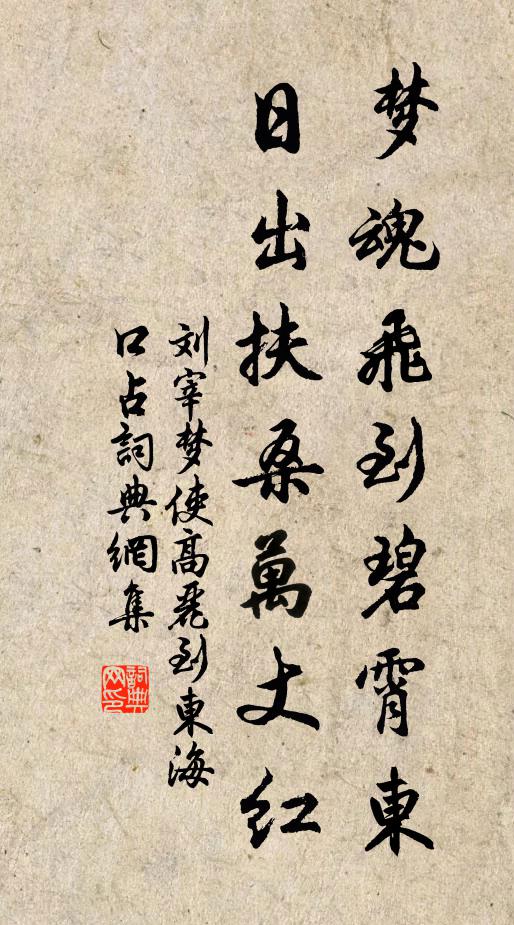 梦魂飛到碧霄東
日出扶桑萬丈红
刘宰梦使高丽到東海
口占詞典網集
詞典
网印